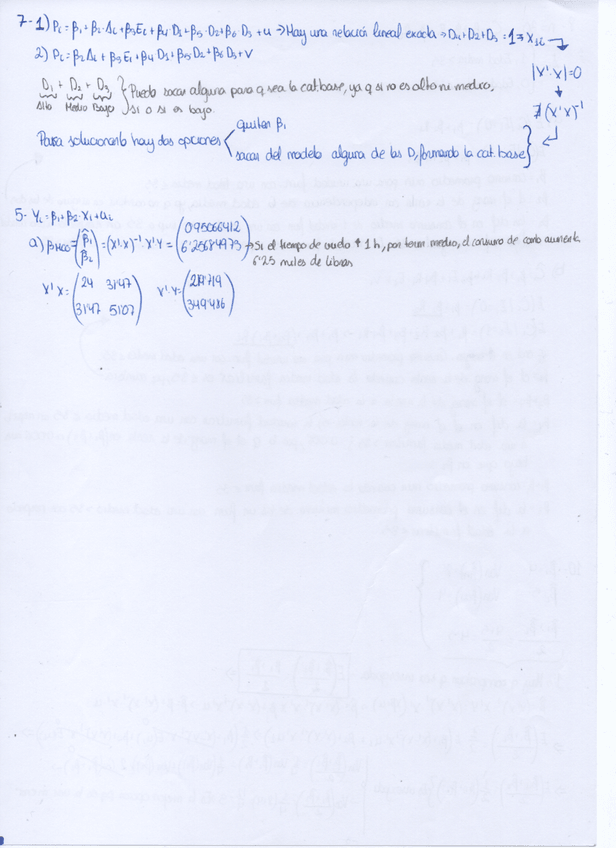 7- 1) Pi = β1 + β2·Ai + β3Ei + β4·D1 + β5·D2 + β6 D3 + u → Hay una relación lineal exacta → D1 + D2 + D3 = 1 = X1i
2) Pi = β2 Ai + β3 Ei + β4 D1 + β5 D2 + β6 D3 + V
|X'·X| = 0
D1 + D2 + D3 } Puedo sacar alguna para q sea la cat. base, ya q si no es alto ni medio,
Alto Medio Bajo sí o sí es bajo.
∄ (X'X)⁻¹
Para solucionarlo hay dos opciones
quitar β1
sacar del modelo alguna de las D, formando la cat. base
5- Yi = β1 + β2·X1 + ui
a) β̂MCO = (β1 β2) = (X'·X)⁻¹·X'Y = (0'95066412 6'25684973) → Si el tiempo de vuelo ↑ 1 h, por term medio, el consumo de comb aumenta
6'25 miles de libras
X'X = (24 31'47 31'47 51'07) X'·Y = (219'719 349'486)